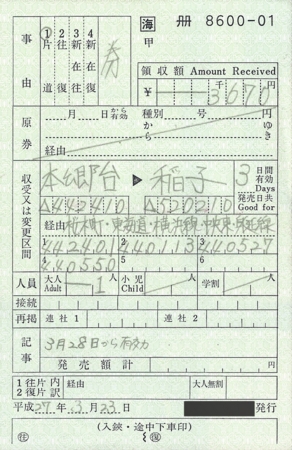 海 冊 8600-01
甲
事由
①片道 2往復 3新在往 4新在往復
券
領収額 Amount Received
¥ 千 3670 円
原券
月 日から有効 種別 号
から ゆき
経由
収受又は変更区間
本郷台 ▶ 稲子
3日間有効 Days
発売日共 Good for
△442410 △520210
経由 桜木町・東海道・横浜線・中央東・身延線
442401 440113 440527
4 5 6
440550
人員 大人 Adult 1 小児 Child 学割
接続
再掲 連社1 連社2
記事
3月28日から有効
発売額計
1往片 内
2復片 訳
経由 大人無割
平成27年3月23日 発行
(入鋏・途中下車印)